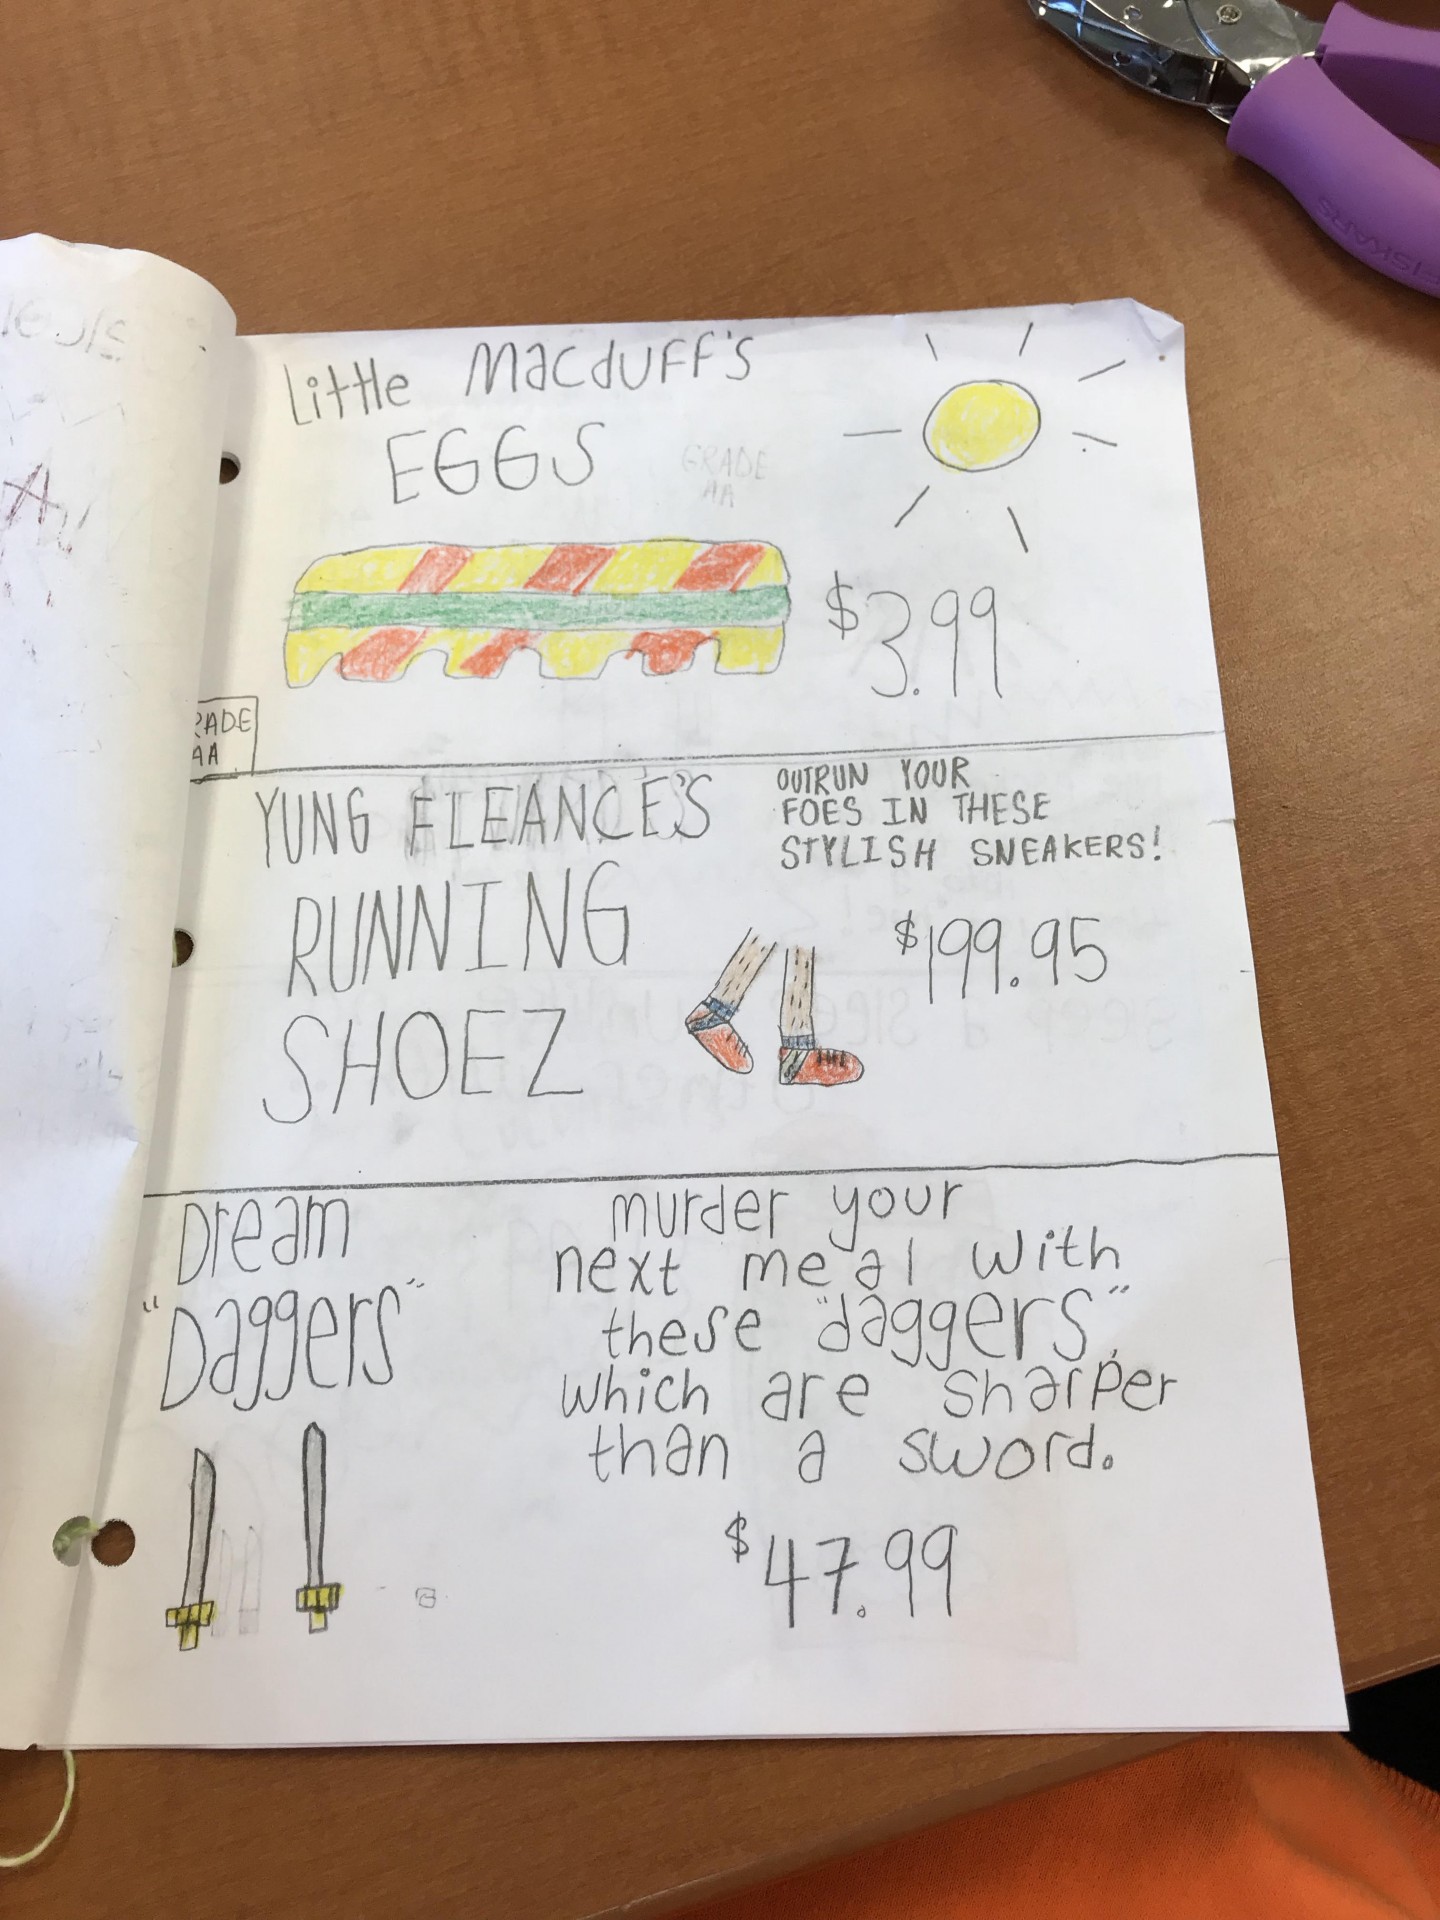 Little Macduff's
EGGS
GRADE
AA
$3.99
RADE
AA
YUNG FLEANCE'S
RUNNING
SHOEZ
OUTRUN YOUR
FOES IN THESE
STYLISH SNEAKERS!
$199.95
Dream
"Daggers"
murder your
next meal with
these "daggers",
which are sharper
than a sword.
$47.99
FISKARS